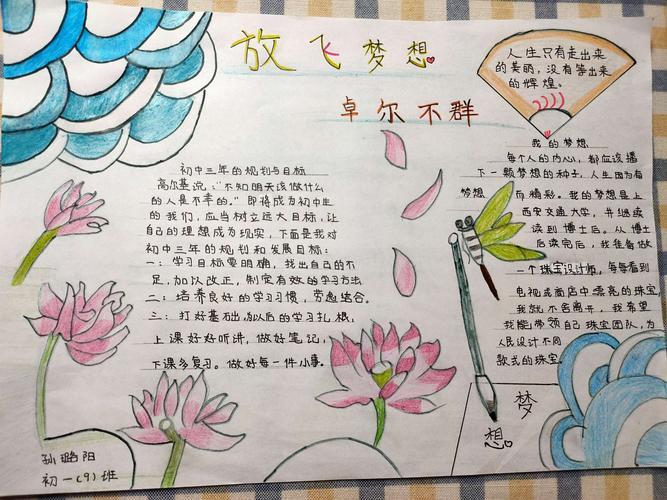 放飞梦想
卓尔不群
人生只有走出来
的美丽，没有等出来
的辉煌。
初中三年的规划与目标
高尔基说："不知明天该做什么
的人是不幸的。"即将成为初中生
的我们，应当树立远大目标，让
自己的理想成为现实，下面是我对
初中三年的规划和发展目标：
一：学习目标要明确，找出自己的不
足，加以改正，制定有效的学习方法
二：培养良好的学习习惯，劳逸结合。
三：打好基础，为以后的学习扎根，
上课好好听讲，做好笔记，
下课多复习。做好每一件小事。
我的梦想
每个人的内心，都应该播
下一颗梦想的种子，人生因为有
梦想而精彩。我的梦想是上
西安交通大学，并继续
读到博士后。从博士
后读完后，我准备做
一个珠宝设计师，每每看到
电视或商店中漂亮的珠宝
我就不舍离开，我希望
我能带领自己珠宝团队，为
人民设计不同
款式的珠宝
梦
想
孙璐阳
初一(9)班